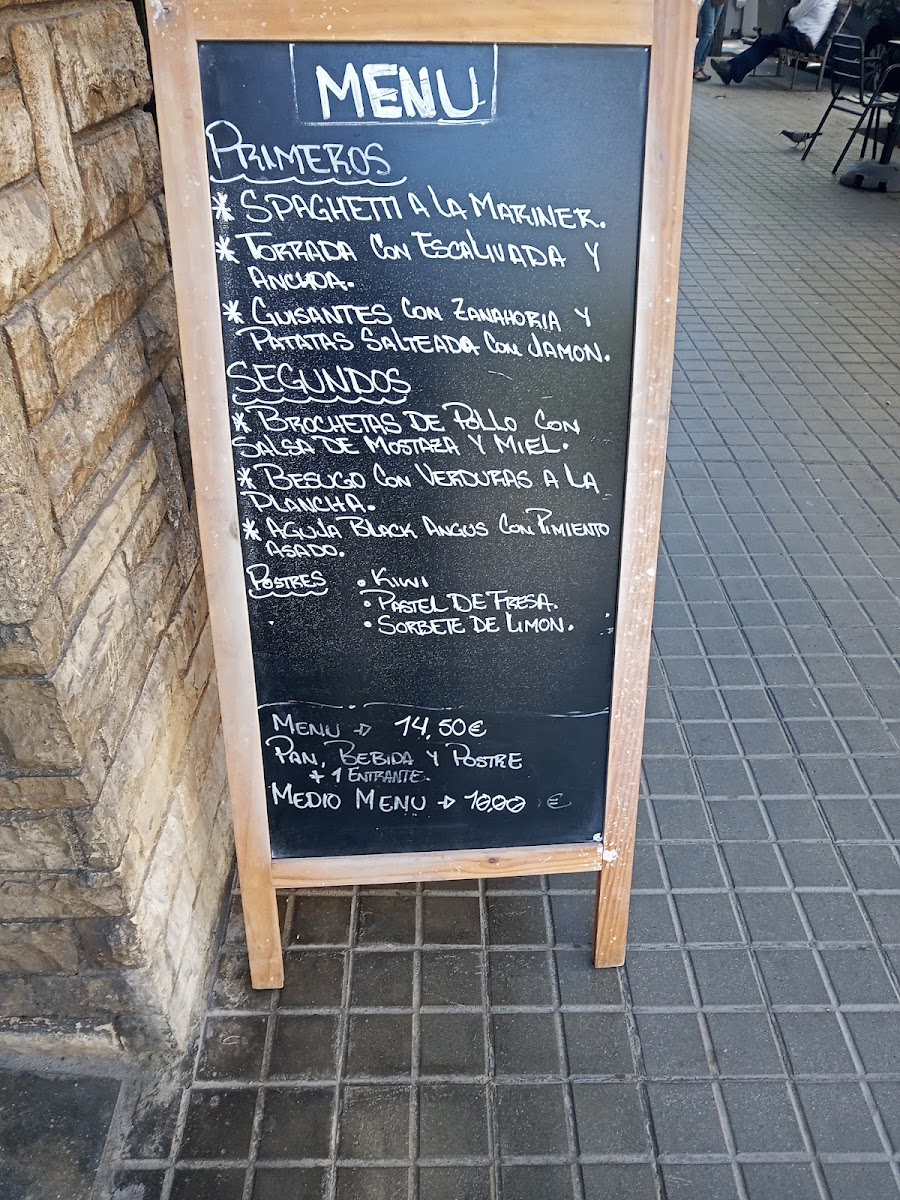 MENU
PRIMEROS
* SPAGHETTI A LA MARINER.
* TORRADA CON ESCALIVADA Y
ANCHOA.
* GUISANTES CON ZANAHORIA Y
PATATAS SALTEADA CON JAMON.
SEGUNDOS
* BROCHETAS DE POLLO CON
SALSA DE MOSTAZA Y MIEL.
* BESUGO CON VERDURAS A LA
PLANCHA.
* AGUJA BLACK ANGUS CON PIMIENTO
ASADO.
POSTRES • KIWI
• PASTEL DE FRESA.
• SORBETE DE LIMON.
MENU → 14,50€
PAN, BEBIDA Y POSTRE
+ 1 ENTRANTE.
MEDIO MENU → 10,00 €